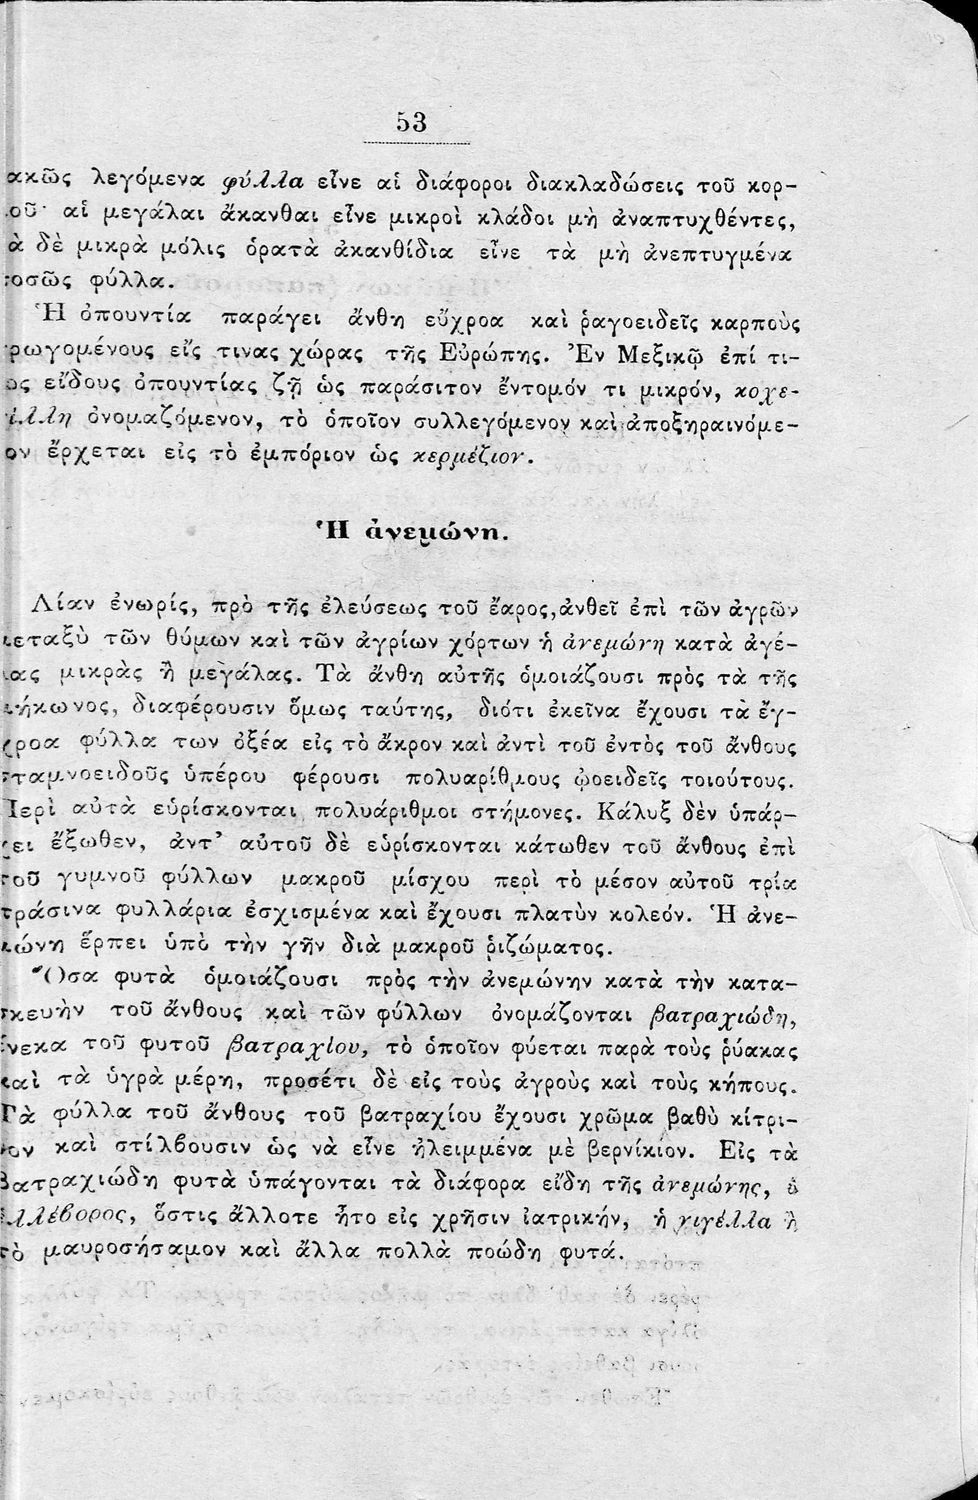 53
ακῶς λεγόμενα φύλλα εἶνε αἱ διάφοροι διακλαδώσεις τοῦ κορ-
οῦ· αἱ μεγάλαι ἄκανθαι εἶνε μικροὶ κλάδοι μὴ ἀναπτυχθέντες,
ὰ δὲ μικρὰ μόλις ὁρατὰ ἀκανθίδια εἶνε τὰ μὴ ἀνεπτυγμένα
οσῶς φύλλα.
Ἡ ὀπουντία παράγει ἄνθη εὔχροα καὶ ῥαγοειδεῖς καρποὺς
ρωγομένους εἴς τινας χώρας τῆς Εὐρώπης. Ἐν Μεξικῷ ἐπί τι-
ος εἴδους ὀπουντίας ζῇ ὡς παράσιτον ἔντομόν τι μικρόν, κοχε-
ίλλη ὀνομαζόμενον, τὸ ὁποῖον συλλεγόμενον καὶ ἀποξηραινόμε-
ον ἔρχεται εἰς τὸ ἐμπόριον ὡς κερμέζιον.
Ἡ ἀνεμώνη.
Λίαν ἐνωρίς, πρὸ τῆς ἐλεύσεως τοῦ ἔαρος, ἀνθεῖ ἐπὶ τῶν ἀγρῶν
μεταξὺ τῶν θύμων καὶ τῶν ἀγρίων χόρτων ἡ ἀνεμώνη κατὰ ἀγέ-
λας μικρὰς ἢ μεγάλας. Τὰ ἄνθη αὐτῆς ὁμοιάζουσι πρὸς τὰ τῆς
μήκωνος, διαφέρουσιν ὅμως ταύτης, διότι ἐκεῖνα ἔχουσι τὰ ἔγ-
χροα φύλλα των ὀξέα εἰς τὸ ἄκρον καὶ ἀντὶ τοῦ ἐντὸς τοῦ ἄνθους
σταμνοειδοῦς ὑπέρου φέρουσι πολυαρίθμους ᾠοειδεῖς τοιούτους.
Περὶ αὐτὰ εὑρίσκονται πολυάριθμοι στήμονες. Κάλυξ δὲν ὑπάρ-
χει ἔξωθεν, ἀντ' αὐτοῦ δὲ εὑρίσκονται κάτωθεν τοῦ ἄνθους ἐπὶ
τοῦ γυμνοῦ φύλλων μακροῦ μίσχου περὶ τὸ μέσον αὐτοῦ τρία
πράσινα φυλλάρια ἐσχισμένα καὶ ἔχουσι πλατὺν κολεόν. Ἡ ἀνε-
μώνη ἕρπει ὑπὸ τὴν γῆν διὰ μακροῦ ῥιζώματος.
Ὅσα φυτὰ ὁμοιάζουσι πρὸς τὴν ἀνεμώνην κατὰ τὴν κατα-
σκευὴν τοῦ ἄνθους καὶ τῶν φύλλων ὀνομάζονται βατραχιώδη,
ἕνεκα τοῦ φυτοῦ βατραχίου, τὸ ὁποῖον φύεται παρὰ τοὺς ῥύακας
καὶ τὰ ὑγρὰ μέρη, προσέτι δὲ εἰς τοὺς ἀγροὺς καὶ τοὺς κήπους.
Τὰ φύλλα τοῦ ἄνθους τοῦ βατραχίου ἔχουσι χρῶμα βαθὺ κίτρι-
νον καὶ στίλβουσιν ὡς νὰ εἶνε ἠλειμμένα μὲ βερνίκιον. Εἰς τὰ
βατραχιώδη φυτὰ ὑπάγονται τὰ διάφορα εἴδη τῆς ἀνεμώνης, ὁ
ἑλλέβορος, ὅστις ἄλλοτε ἦτο εἰς χρῆσιν ἰατρικήν, ἡ νιγέλλα ἢ
τὸ μαυροσήσαμον καὶ ἄλλα πολλὰ ποώδη φυτά.